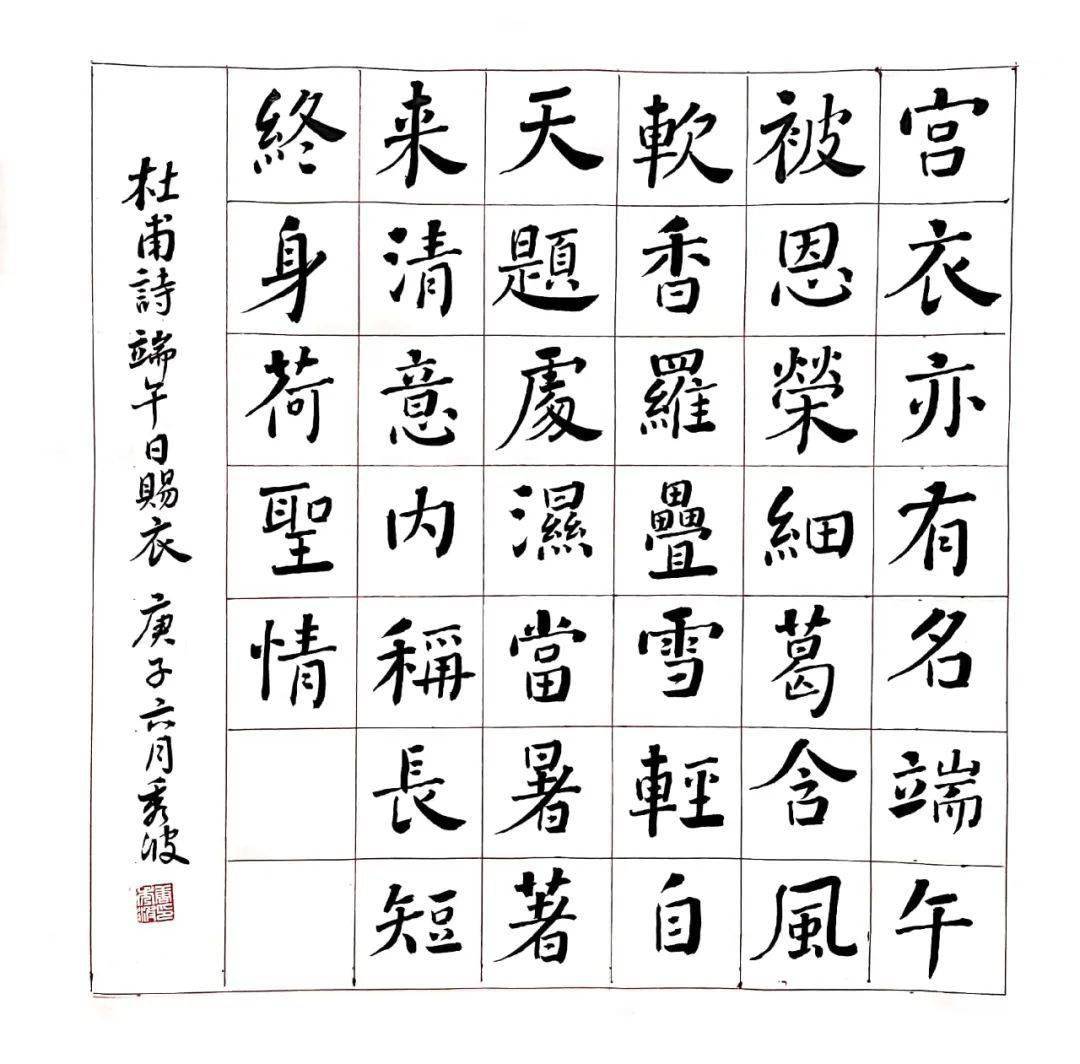 宫衣亦有名端午
被恩榮細葛含風
軟香羅疊雪輕自
天題處濕當暑著
来清意内稱長短
終身荷聖情
杜甫詩端午日賜衣 庚子六月秀波